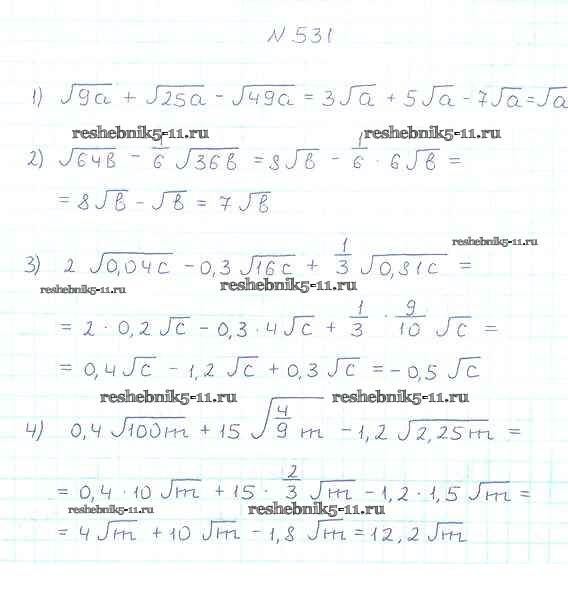 N 531
1) √9a + √25a - √49a = 3√a + 5√a - 7√a = √a
reshebnik5-11.ru reshebnik5-11.ru
2) √64в - 1/6 √36в = 8√в - 1/6 · 6√в =
= 8√в - √в = 7√в
reshebnik5-11.ru
3) 2√0,04c - 0,3√16c + 1/3 √0,81c =
reshebnik5-11.ru reshebnik5-11.ru
= 2 · 0,2√c - 0,3 · 4√c + 1/3 · 9/10 √c =
= 0,4√c - 1,2√c + 0,3√c = -0,5√c
reshebnik5-11.ru reshebnik5-11.ru
4) 0,4√100m + 15√(4/9 m) - 1,2√2,25m =
= 0,4 · 10√m + 15 · 2/3 √m - 1,2 · 1,5√m =
reshebnik5-11.ru reshebnik5-11.ru
= 4√m + 10√m - 1,8√m = 12,2√m